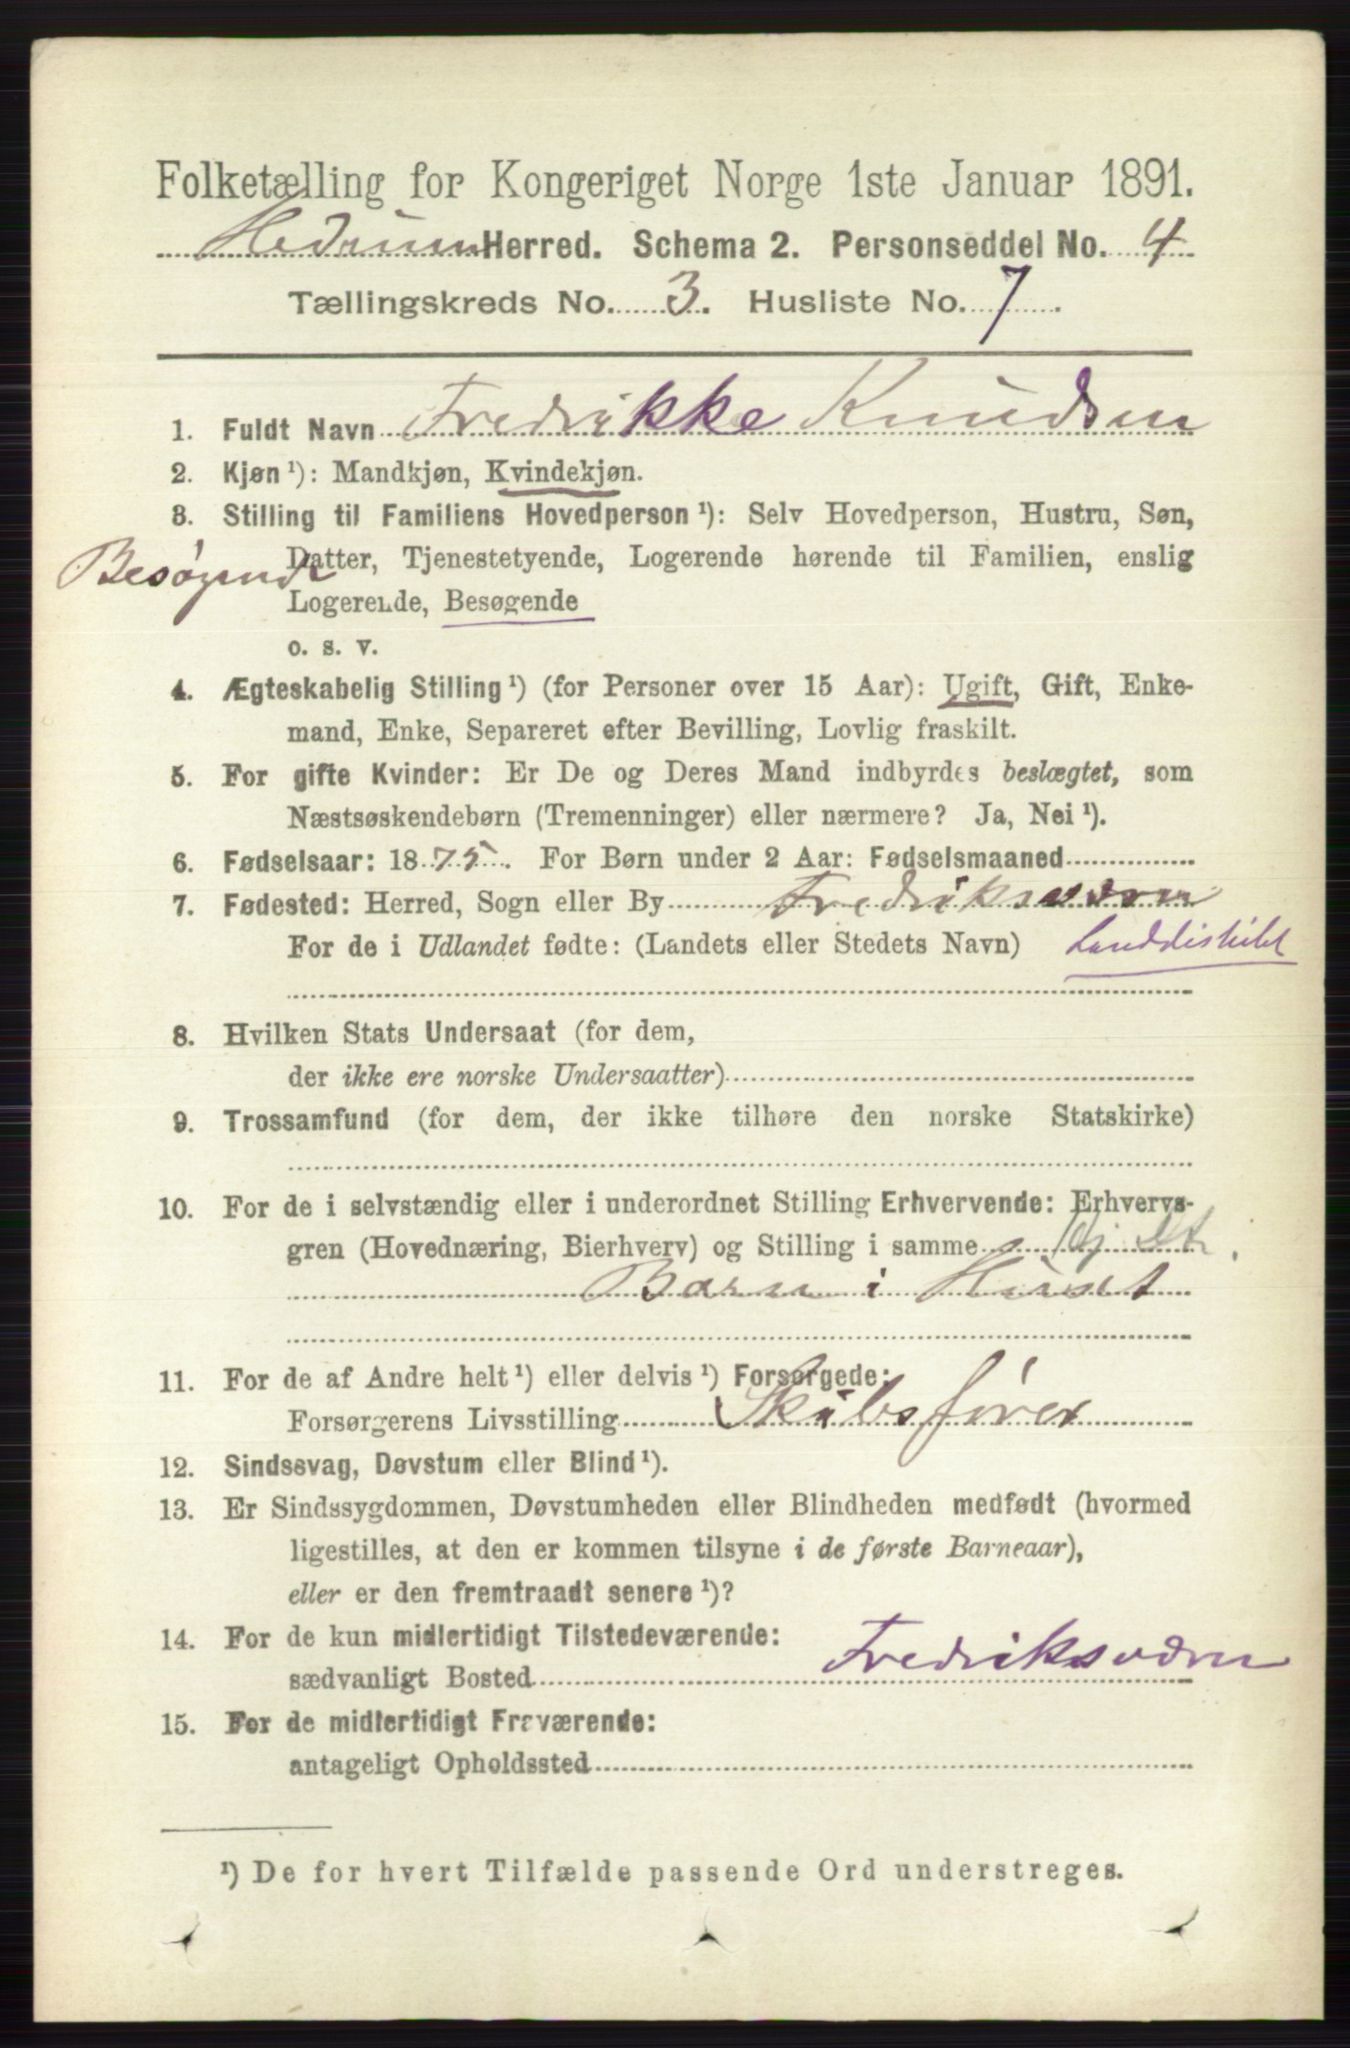 Folketælling for Kongeriget Norge 1ste Januar 1891.
Hedrum Herred. Schema 2. Personseddel No. 4
Tællingskreds No. 3. Husliste No. 7.
1. Fuldt Navn Fredrikke Knudsen
2. Kjøn ¹): Mandkjøn, Kvindekjøn.
3. Stilling til Familiens Hovedperson ¹): Selv Hovedperson, Hustru, Søn,
Besøgende Datter, Tjenestetyende, Logerende hørende til Familien, enslig
Logerende, Besøgende
o. s. v.
4. Ægteskabelig Stilling ¹) (for Personer over 15 Aar): Ugift, Gift, Enke-
mand, Enke, Separeret efter Bevilling, Lovlig fraskilt.
5. For gifte Kvinder: Er De og Deres Mand indbyrdes beslægtet, som
Næstsøskendebørn (Tremenninger) eller nærmere? Ja, Nei ¹).
6. Fødselsaar: 1875. For Børn under 2 Aar: Fødselsmaaned
7. Fødested: Herred, Sogn eller By Fredriksværn
For de i Udlandet fødte: (Landets eller Stedets Navn) Landdistrikt
8. Hvilken Stats Undersaat (for dem,
der ikke ere norske Undersaatter)
9. Trossamfund (for dem, der ikke tilhøre den norske Statskirke)
10. For de i selvstændig eller i underordnet Stilling Erhvervende: Erhvervs-
gren (Hovednæring, Bierhverv) og Stilling i samme
Barn i Huset
11. For de af Andre helt ¹) eller delvis ¹) Forsørgede:
Forsørgerens Livsstilling Skibsfører
12. Sindssvag, Døvstum eller Blind ¹).
13. Er Sindssygdommen, Døvstumheden eller Blindheden medfødt (hvormed
ligestilles, at den er kommen tilsyne i de første Barneaar),
eller er den fremtraadt senere ¹)?
14. For de kun midlertidigt Tilstedeværende:
sædvanligt Bosted Fredriksværn
15. For de midlertidigt Fraværende:
antageligt Opholdssted
¹) De for hvert Tilfælde passende Ord understreges.